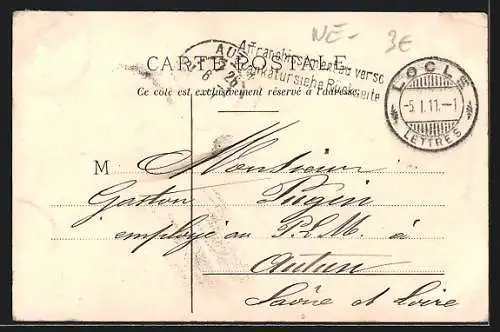 NE- 3€
CARTE POSTALE
Affranchissement au verso
Frankatur siehe Rückseite
Ce côté est exclusivement réservé à l'adresse.
LOCLE
-5.I.11.-1
LETTRES
M Monsieur
Gaston Pugin
employé au P.L.M. à
Autun
Saône et Loire